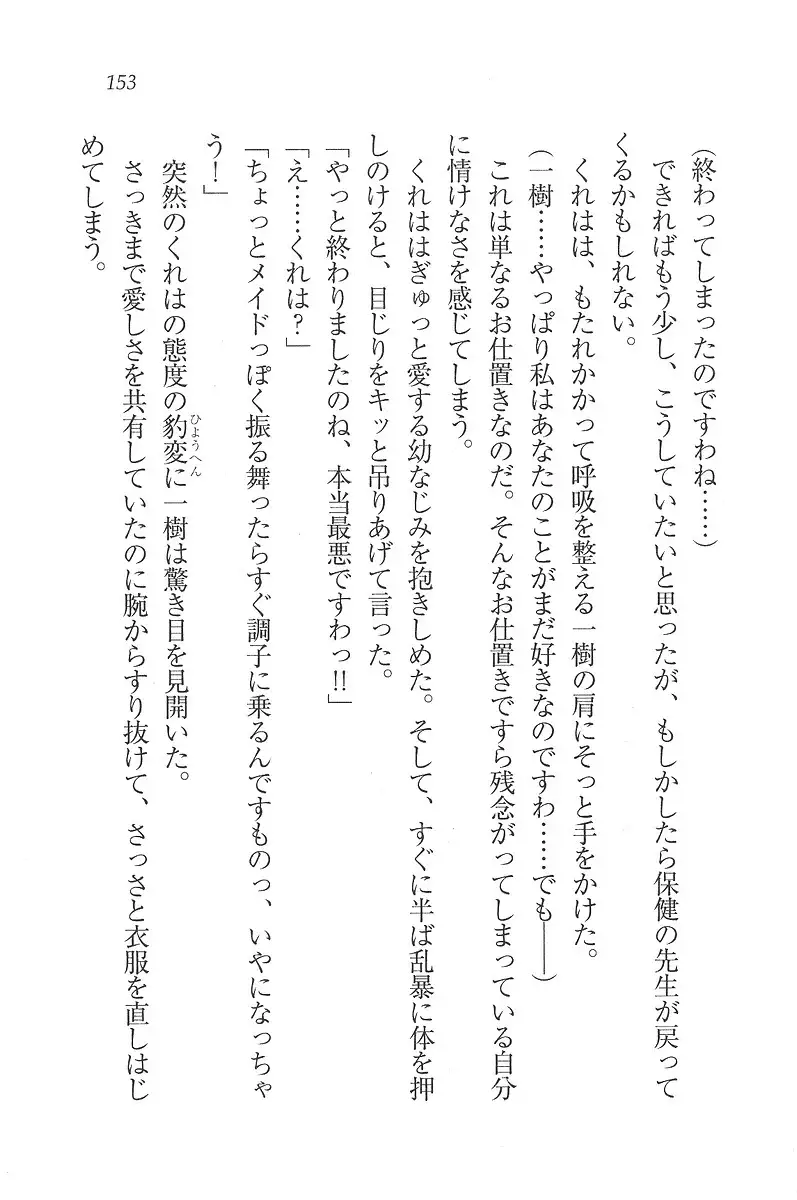 153
（終わってしまったのですわね……）
できればもう少し、こうしていたいと思ったが、もしかしたら保健の先生が戻って
くるかもしれない。
くれはは、もたれかかって呼吸を整える一樹の肩にそっと手をかけた。
（一樹……やっぱり私はあなたのことがまだ好きなのですわ……でも――）
これは単なるお仕置きなのだ。そんなお仕置きですら残念がってしまっている自分
に情けなさを感じてしまう。
くれははぎゅっと愛する幼なじみを抱きしめた。そして、すぐに半ば乱暴に体を押
しのけると、目じりをキッと吊りあげて言った。
「やっと終わりましたのね、本当最悪ですわっ!!」
「え……くれは？」
「ちょっとメイドっぽく振る舞ったらすぐ調子に乗るんですものっ、いやになっちゃ
う！」
突然のくれはの態度の豹変に一樹は驚き目を見開いた。
ひょうへん
さっきまで愛しさを共有していたのに腕からすり抜けて、さっさと衣服を直しはじ
めてしまう。